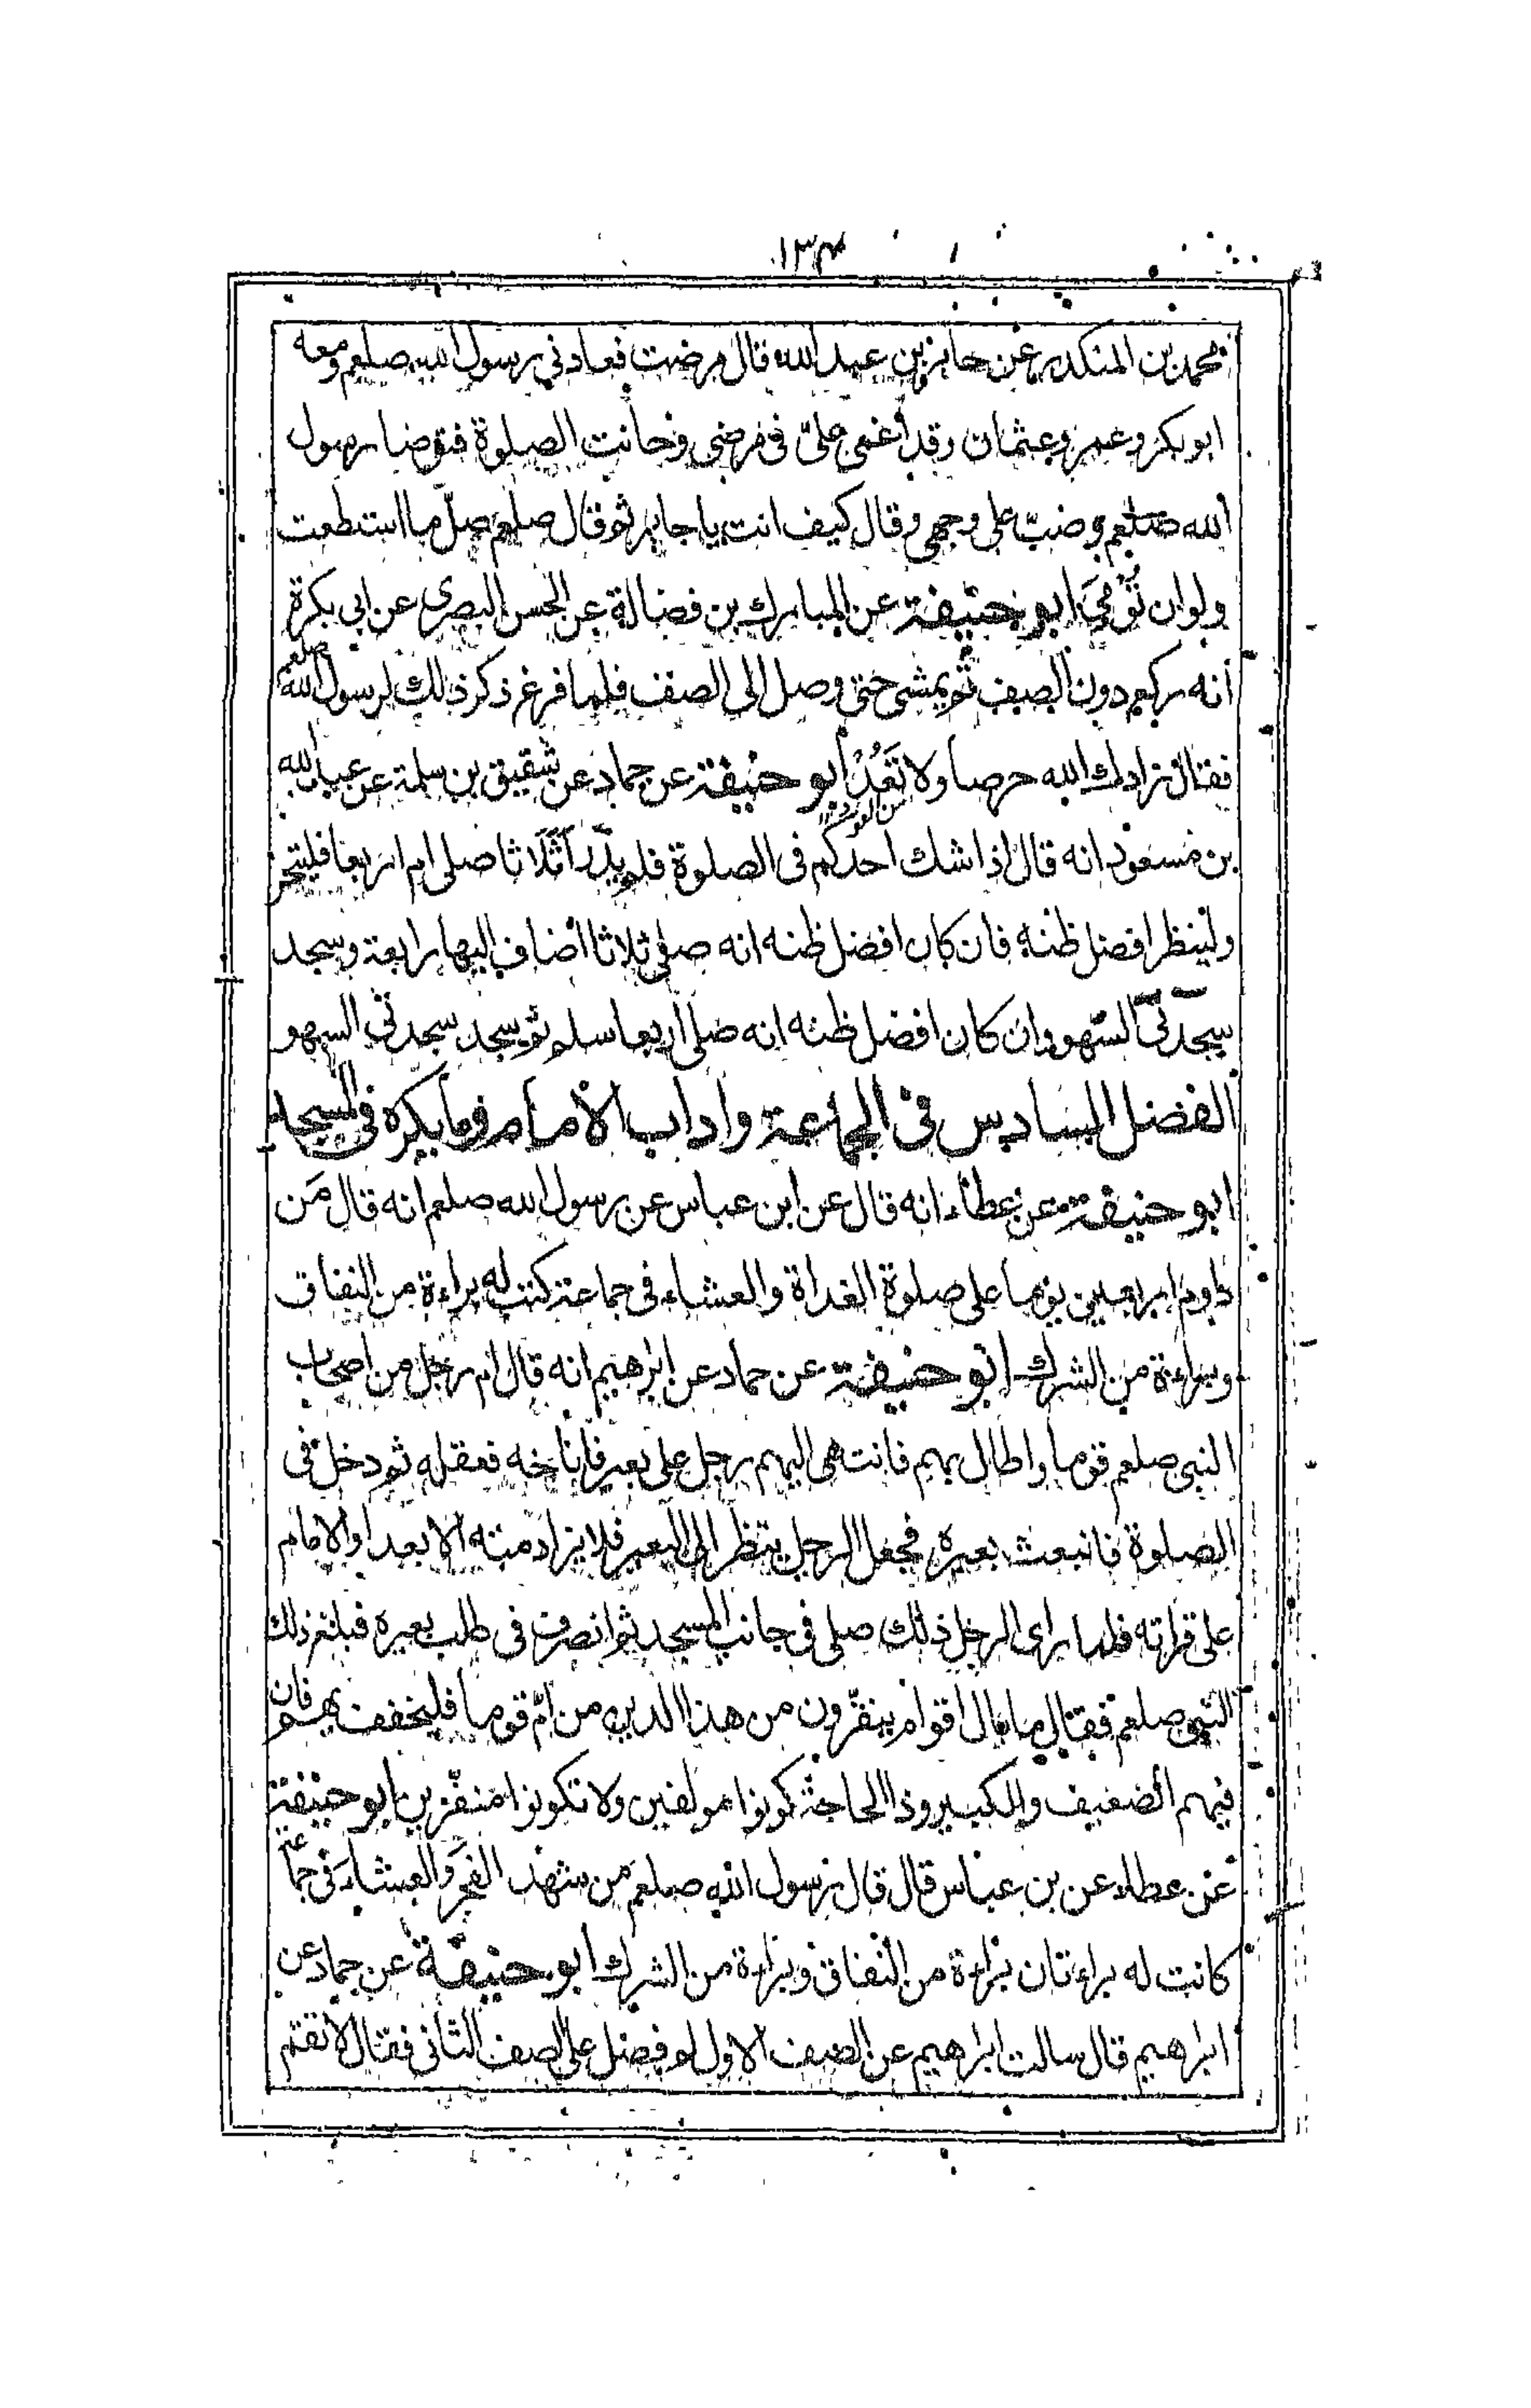 ١٣٤
محمد بن المنكدر عن جابر بن عبد الله قال مرضت فعادني رسول الله صلعم ومعه
ابو بكر وعمر وعثمان وقد أغمى علىّ فى مرضى وحانت الصلوة فتوضا رسول
الله صلعم وصبّ على وجهى وقال كيف انت يا جابر ثم قال صلعم صلّ ما استطعت
ولو ان تُوْمِيَ ابو حنيفة عن المبارك بن فضالة عن الحسن البصرى عن ابى بكرة
انه ركع دون الصف ثم يمشى حتى وصل الى الصف فلما فرغ ذكر ذلك لرسول الله صلعم
فقال زادك الله حرصا ولا تَعُدْ ابو حنيفة عن حماد عن شقيق بن سلمة عن عبد الله
بن مسعود انه قال اذا شك احدكم فى الصلوة فلم يدر أثَلَاثا صلى ام اربعا فليتحر
ولينظر افضل ظنه فان كان افضل ظنه انه صلى ثلاثا اضاف اليها رابعة وسجد
سجدتَى السّهو وان كان افضل ظنه انه صلى اربعا سلم ثم سجد سجدتى السهو
الفصل السادس فى الجماعة واداب الامام وما يكره فى المسجد
ابو حنيفة عن عطاء انه قال عن ابن عباس عن رسول الله صلعم انه قال مَن
داوم اربعين يوما على صلوة الغداة والعشاء فى جماعة كتب له براءة من النفاق
وبراءة من الشرك ابو حنيفة عن حماد عن ابرهيم انه قال ام رجل من اصحاب
النبى صلعم قوما واطال بهم فانتهى اليهم رجل على بعير فاناخه فعقله ثم دخل فى
الصلوة فانبعث بعيره فجعل الرجل ينظر الى البعير فلا يزاد منه الا بعدا والامام
على قراته فلما راى الرجل ذلك صلى فى جانب المسجد ثم انصرف فى طلب بعيره فبلغ ذلك
النبى صلعم فقال ما بال اقوام ينفّرون من هذا الدين من امّ قوما فليخفف بهم فان
فيهم الضعيف والكبير وذا الحاجة كونوا مولفين ولا تكونوا منفّرين ابو حنيفة
عن عطاء عن بن عباس قال قال رسول الله صلعم من شهد الفجر والعشاء فى جماعة
كانت له براءتان براءة من النفاق وبراءة من الشرك ابو حنيفة عن حماد عن
ابرهيم قال سالت ابراهيم عن الصف الاول لم فضل على الصف الثانى فقال لا تقم